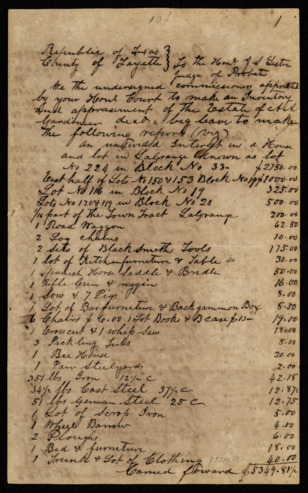 1
Republic of Texas }
County of Fayette } To the Honl. J S Lester
Judge of Probate
We the undersigned commissioners appointed
by your Honl Court to make an Inventory
and appraisement of the Estate of
Gardinier decd beg leave to make
the following report (viz)
an undivided Interest in a House
and lot in Lagrange Known as lot
No 224 in Block No 33 $2750.00
East half of Lots No 154 & 153 Block No 19 1000.00
Lot No 118 in Block No 19 325.00
Lots No 120 & 119 in Block No 20 500.00
part of the Town Tract Lagrange 200.00
1 Road Waggon 62.50
2 Log chains 10.00
2 Sets of BlackSmith Tools 175.00
1 Lot of Kitchen furniture & Table 30.00
1 Spanish Horse Saddle & Bridle 50.00
1 Rifle Gun & 16.00
1 Sow & 7 Pigs 8.00
1 Lot of Bar furniture & Backgammon Box
6 Chairs 1 Lot Books & 19.00
1 Crosscut & 1 whip saw 18.00
3 Packing Tubs 5.00
1 Bee House 20.00
1 Pair Steelyards 2.00
351 lbs Iron 12½ C 42.18
34½ lbs Cast Steel 37½ C 12.87
51 lbs German Steel 25 C 12.75
1 Lot of Scrap Iron 5.00
1 Wheel Barrow 4.00
2 Ploughs 6.00
1 Bed & furniture 18.00
1 Trunk & Lot of Clothing 40.00
Carried forward $5349.81½